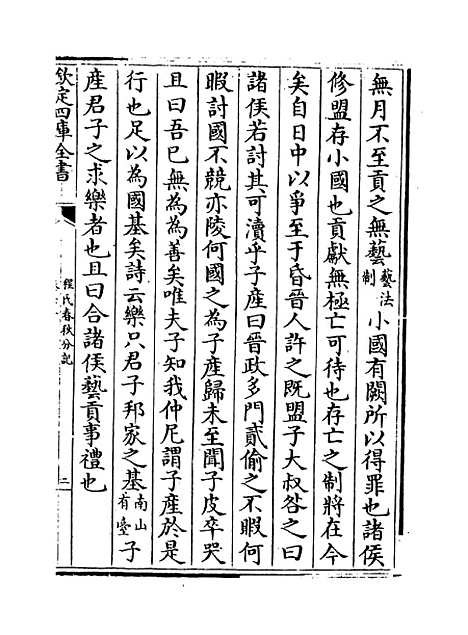 無月不至貢之無藝藝法制小國有闕所以得罪也諸侯
修盟存小國也貢獻無極亡可待也存亡之制將在今
矣自日中以爭至于昏晉人許之既盟子大叔咎之曰
諸侯若討其可瀆乎子產曰晉政多門貳偷之不暇何
暇討國不競亦陵何國之為子產歸未至聞子皮卒哭
且曰吾已無為為善矣唯夫子知我仲尼謂子產於是
行也足以為國基矣詩云樂只君子邦家之基南山有臺子
產君子之求樂者也且曰合諸侯藝貢事禮也
欽定四庫全書
程氏春秋分記
二